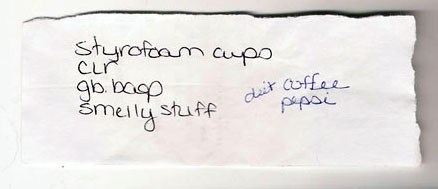 styrofoam cups
CLR
gb. bags
smelly stuff
diet coffee
pepsi